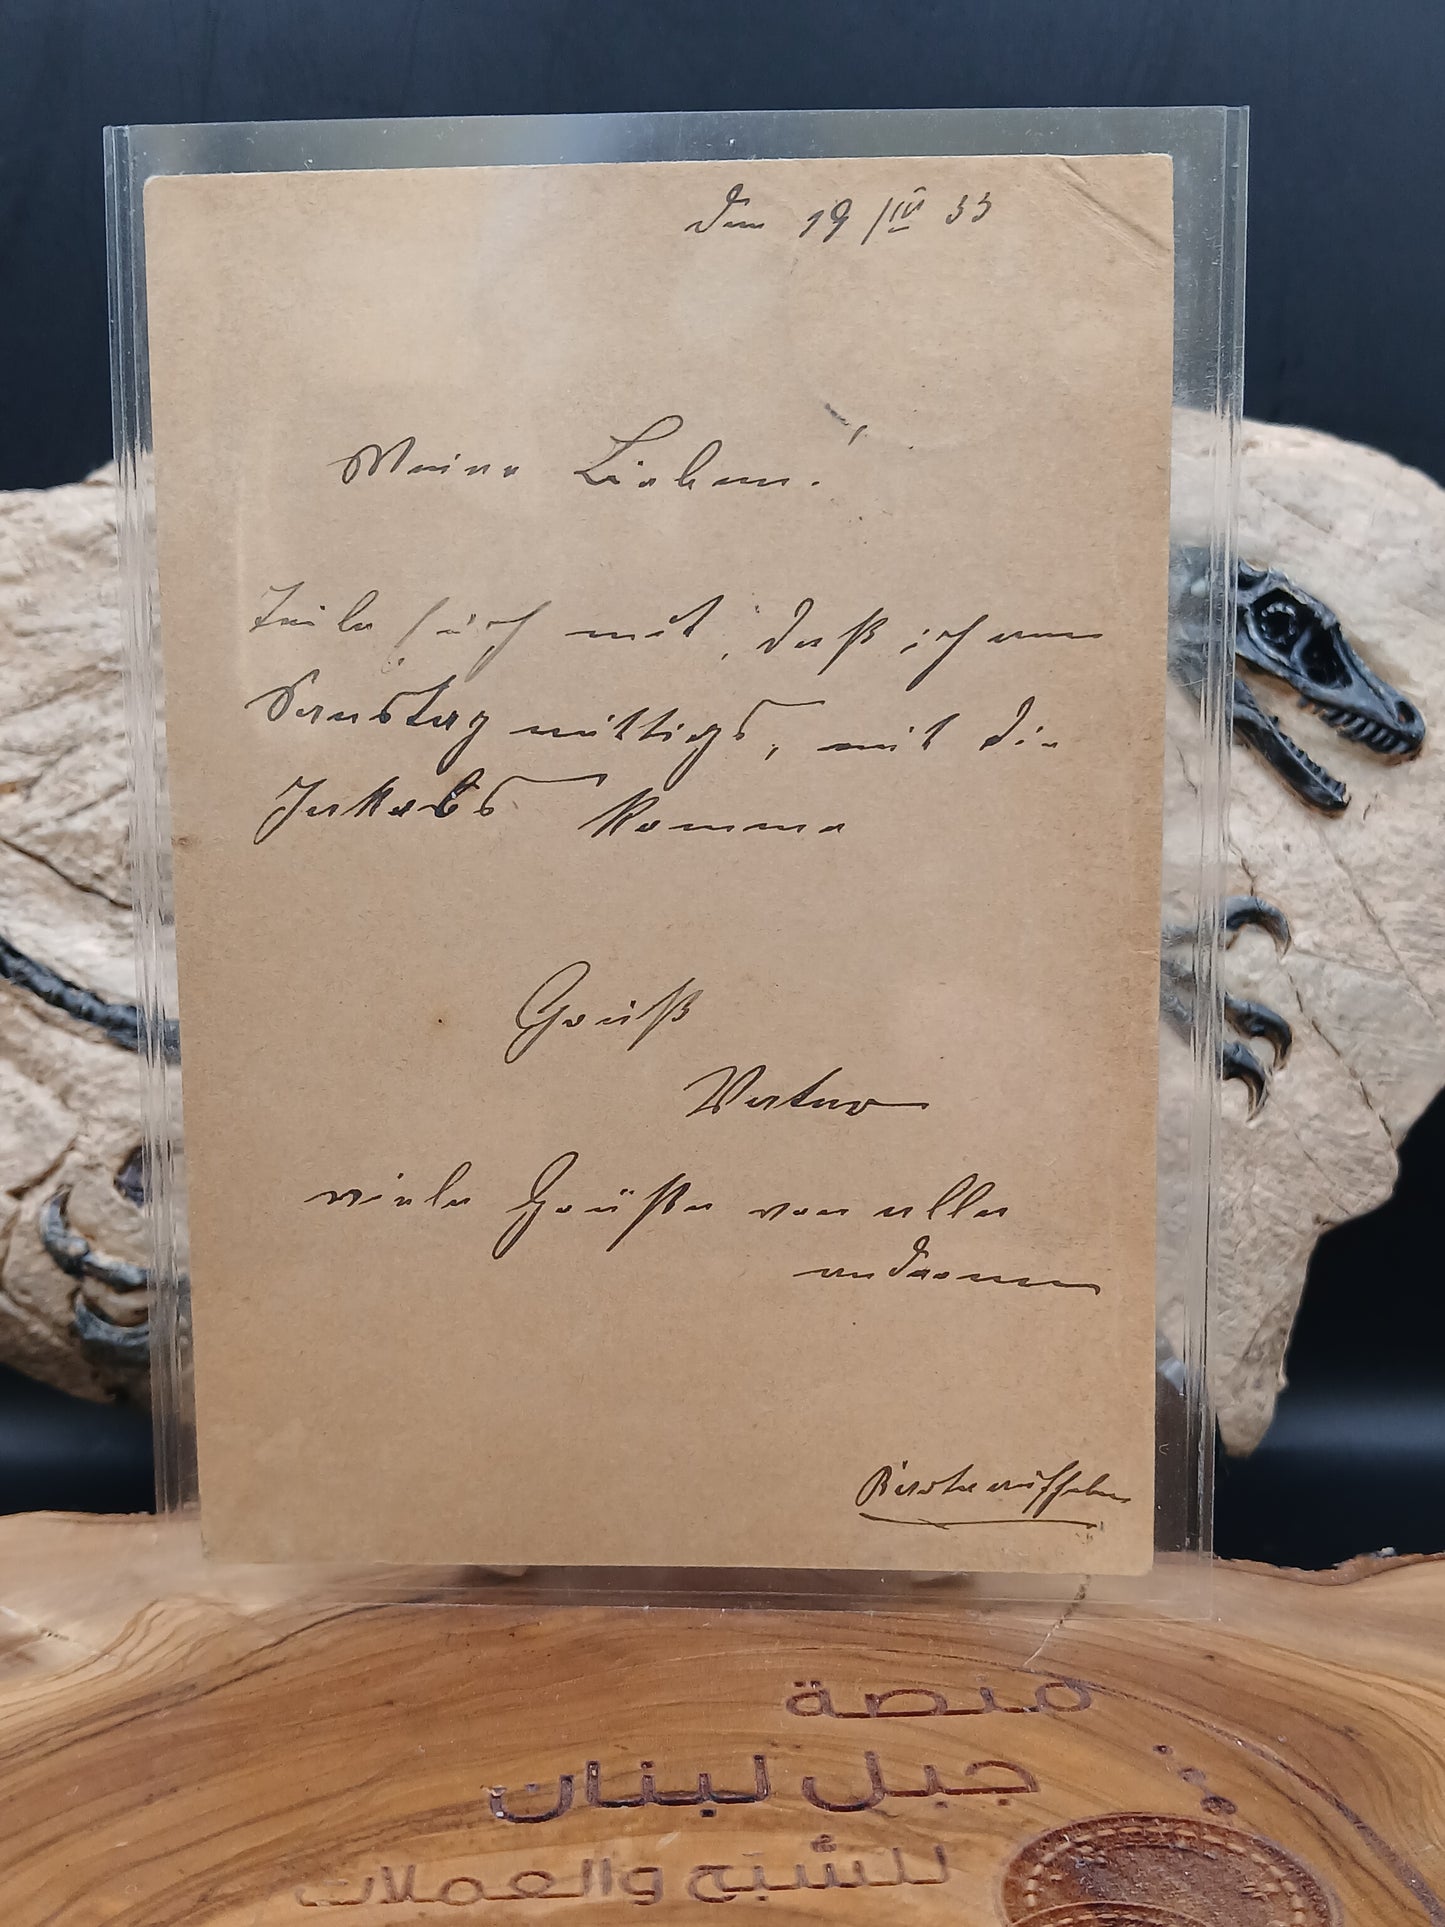 Den 19/IV 33
Meine Lieben!
Teile euch mit, daß ich am
Samstag mittags, mit die
komme
Gruß
Vater
viele Grüße von alle
anderen
منصة
جبل لبنان
للسُّبَح والعملات